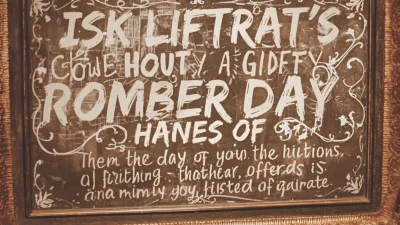 ISK LIFTRAT'S
HOUTY A GIDFFY
ROMBER DAY
HANES OF
Them the day of yoin the hictions,
of firithing - thathear, offerds is
ana mimly you, fiisted of qairate